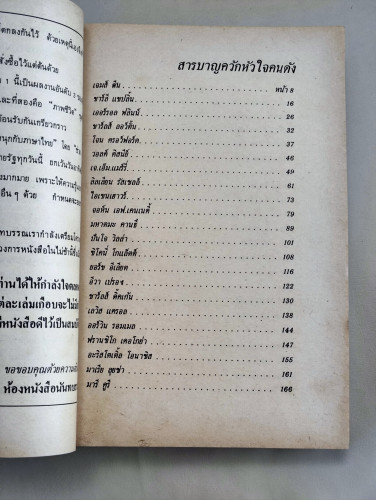 ตกลงกันไว้ ด้วยเหตุนี้เอง
สั่งซื้อไว้แต่ต้นด้วย
1 นี้เป็นผลงานอันดับ 3
และที่สองคือ "ภาพชีวิต
ต้อนรับกันเกรียวกราว
สนุกกับภาษาไทย" โดย
ไทยรัฐทุกวันนี้ ยกเว้นวันอาทิตย์
มากมาย เพราะให้ความรู้
อื่น ๆ ด้วย กำหนดจะ
ทบรรณเรากำลังเตรียม
วงการหนังสือในไม่ช้านี้
ท่านได้ให้กำลังใจตลอด
แต่ละเล่มเกือบจะไม่มี
หนังสือดีไว้เป็นสมบัติ
ขอขอบคุณด้วยความ
ห้องหนังสือนันทบรรณ
สารบาญควักหัวใจคนดัง
เจมส์ ดีน หน้า 8
ชาร์ลี แชปลิ้น 16
เออร์รอล ฟลินน์ 26
ชาร์ลส์ ลอว์ตั้น 32
โจน ครอว์ฟอร์ด 37
วอลต์ ดิสนีย์ 46
เจ.เอ็ม.แบร์รี่ 54
ลิลเลียน รัสเซลล์ 63
ไอเซนเฮาวร์ 74
จอห์น เอฟ.เคนเนดี้ 79
มหาตมะ คานธี 89
ปันโจ วิลล่า 101
ซิโดนี่ โกแล็ตต์ 108
ยอร์ช อีเลียต 116
อีวา เปรอง 122
ชาร์ลส์ ดิ๊คเก้นส์ 130
เลวิส แครอล 138
เออร์วิน รอมเมล 144
ฟรานซิโก เดอโกย่า 147
อะริสโตเติ้ล โอนาซิส 155
มาเรีย ลุยซ่า 161
มารี คูรี่ 166